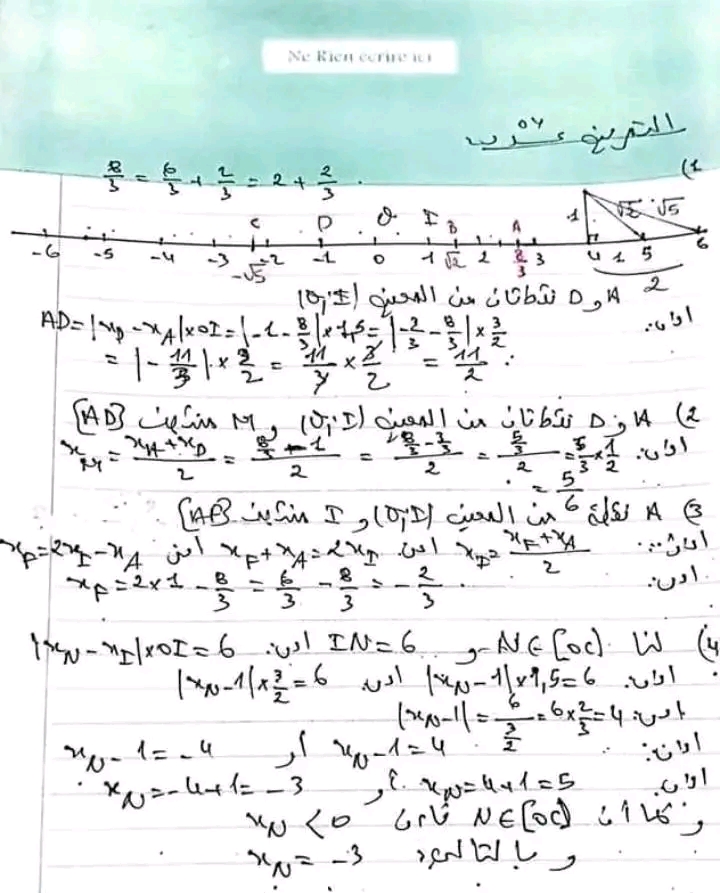 Ne Rien ecrire ici
التمرين عدد 04
(1
8/3 = 6/3 + 2/3 = 2 + 2/3 .
C D O I B A 1 √2 √5
-6 -5 -4 -3 -√5 -2 -1 0 1 √2 2 8/3 3 4 1 5 6
2
A و D نقطتان من المعين (O;I)
اذن: AD=|x_D - x_A|×OI = |-1 - 8/3|×1,5 = |-3/3 - 8/3|×3/2
= |-11/3|×3/2 = 11/3 × 3/2 = 11/2 .
(2 A و D نقطتان من المعين (O;I) و M منتصف [AD]
اذن: x_M = (x_A+x_D)/2 = (8/3 - 1)/2 = (8/3 - 3/3)/2 = (5/3)/2 = 5/3 × 1/2
= 5/6
(3 A نقطة من المعين (O;I) و I منتصف
اذن: x_I = (x_F+x_A)/2 اذن x_F+x_A=2x_I اذن x_F=2x_I-x_A
اذن: x_F=2×1 - 8/3 = 6/3 - 8/3 = -2/3 .
(4 لنا N∈[OC) و IN=6 اذن: |x_N - x_I|×OI=6
اذن: |x_N-1|×1,5=6 اذن |x_N-1|×3/2=6
اذن: |x_N-1| = 6/(3/2) = 6×2/3 = 4
اذن: x_N-1=4 أو x_N-1=-4
اذن: x_N=4+1=5 أو x_N=-4+1=-3 .
و بما أن N∈[OC) فإن x_N<0
و بالتالي x_N = -3 .